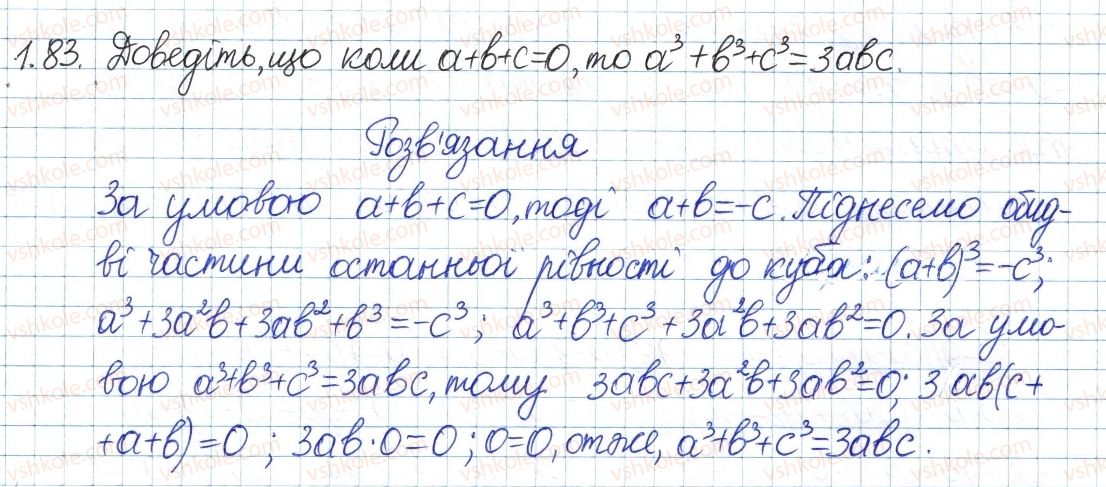 1.83. Доведіть, що коли a+b+c=0, то a³+b³+c³=3abc.
Розв'язання
За умовою a+b+c=0, тоді a+b=-c. Піднесемо обид-
ві частини останньої рівності до куба: (a+b)³=-c³;
a³+3a²b+3ab²+b³=-c³; a³+b³+c³+3a²b+3ab²=0. За умо-
вою a³+b³+c³=3abc, тому 3abc+3a²b+3ab²=0; 3ab(c+
+a+b)=0; 3ab·0=0; 0=0, отже, a³+b³+c³=3abc.